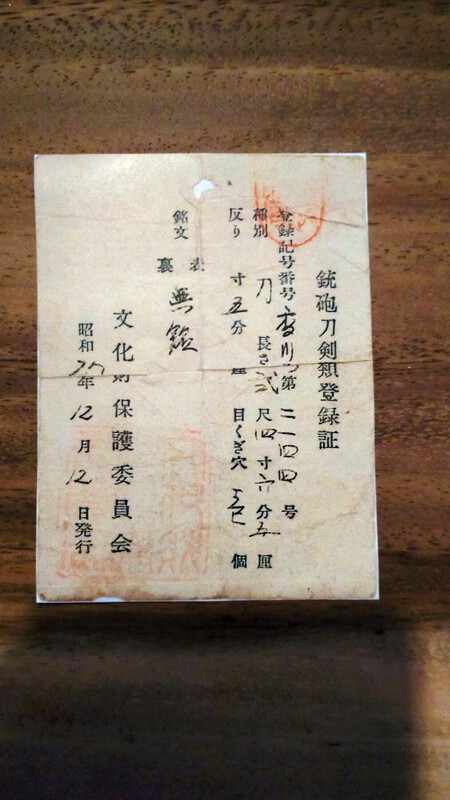 銃砲刀剣類登録証
登録記号番号 香川 第二一四四号
種別 刀 長さ弐尺四寸六分五厘
反り 寸五分 厘 目くぎ穴 壱個
銘文 表 無銘
裏
文化財保護委員会
昭和 年12月12日発行